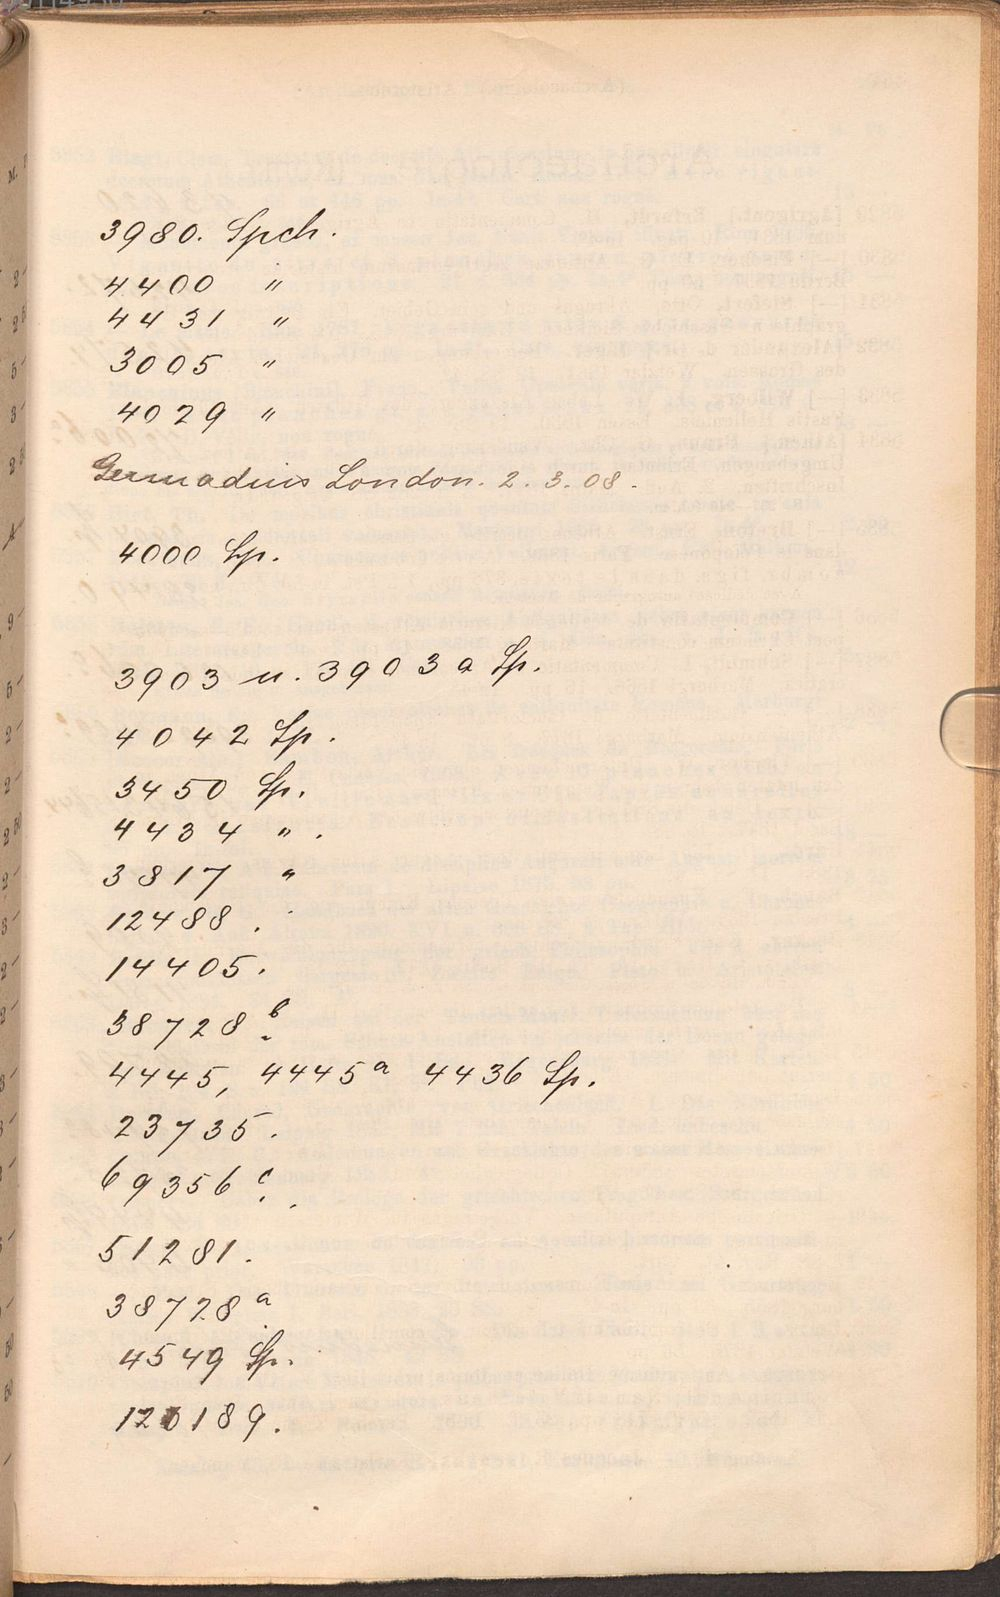 3980. Spch.
4400 "
4431 "
3005 "
4029 "
Gennadius London. 2. 3. 08.
4000 Sp.
3903 u. 3903a Sp.
4042 Sp.
3450 Sp.
4434 " .
3817 "
12488.
14405.
38728 b.
4445, 4445a 4436 Sp.
23735.
69356 c.
51281.
38728 a.
4549 Sp.
120189.